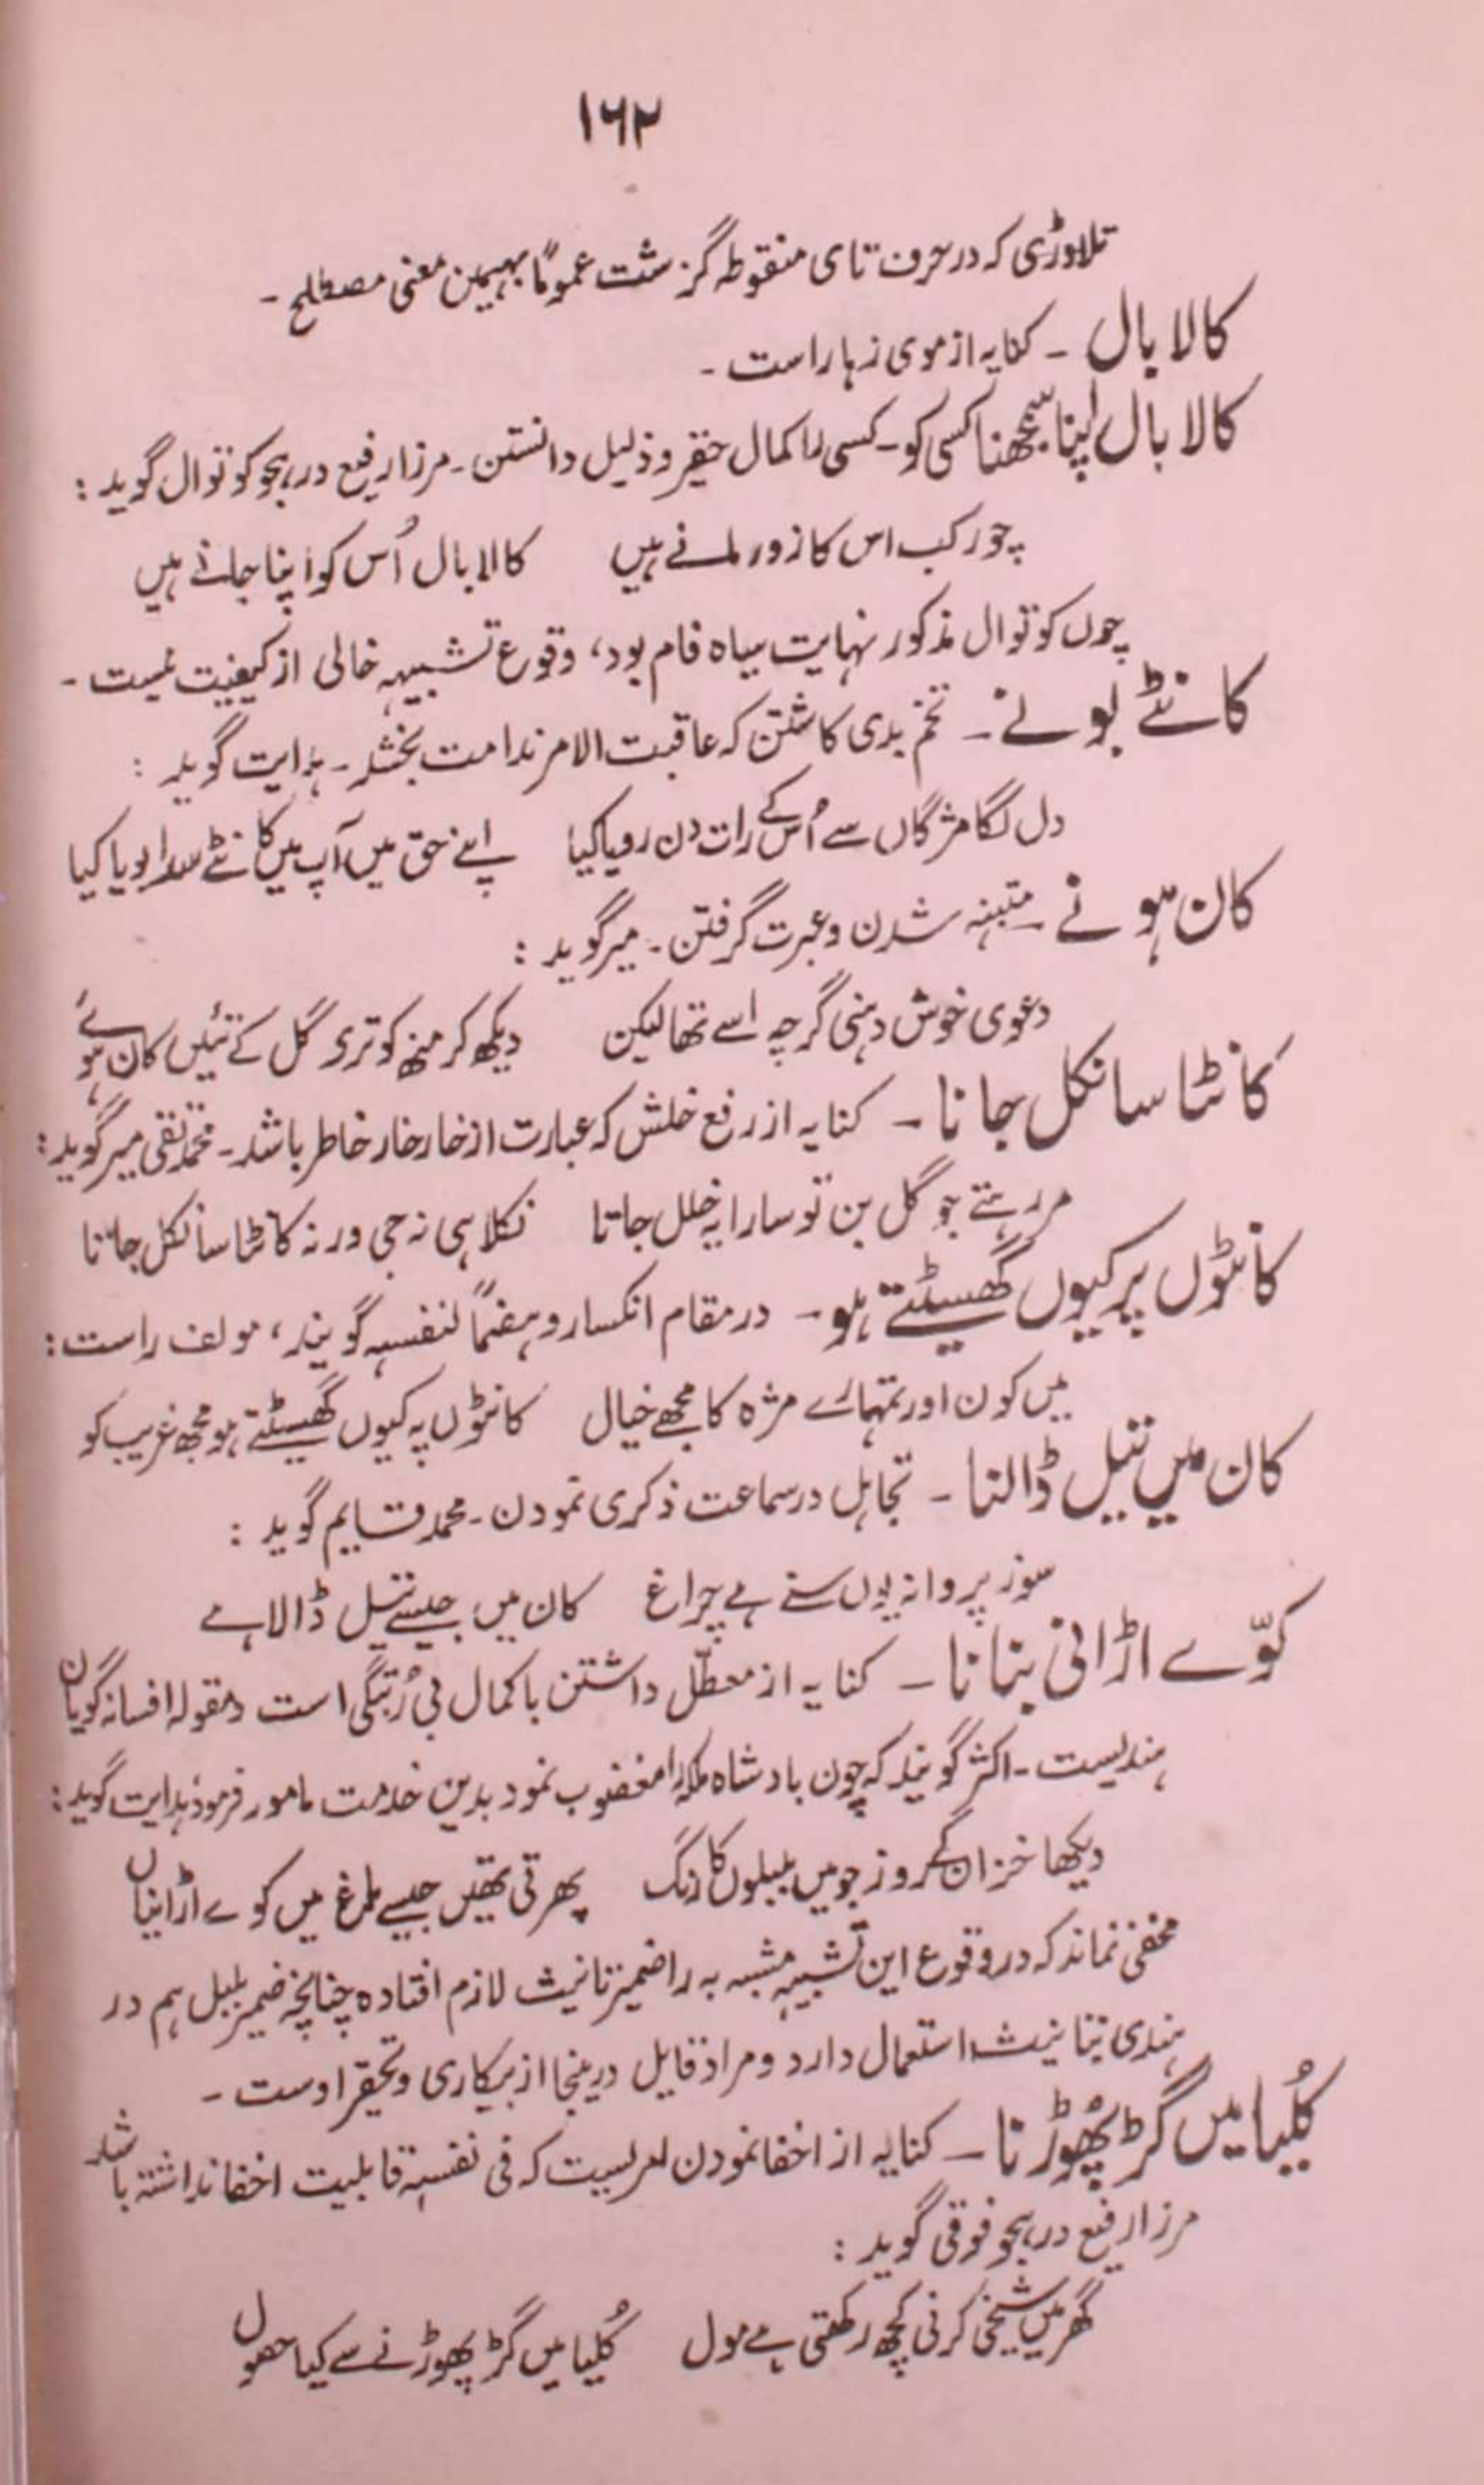 ۱۶۲
تلاوڑی کہ در حرف تای منقوطہ گزشت عموماً بہمین معنی مصطلح ۔
کالا بال ۔ کنایہ از موی زہار است ۔
کالا بال اپنا سمجھنا کسی کو ۔ کسی را کمال حقیر و ذلیل دانستن ۔ مرزا رفیع در ہجو کوتوال گوید :
چور کب اس کا زور مانے ہیں کالا بال اُس کو اپنا جانے ہیں
چوں کوتوال مذکور نہایت سیاہ فام بود، وقوع تشبیہہ خالی از کیفیت نیست ۔
کانٹے بونے ۔ تخم بدی کاشتن کہ عاقبت الامر ندامت بخشد ۔ ہدایت گوید :
دل لگا مژگاں سے اُس کے رات دن رویا کیا اپنے حق میں آپ میں کانٹے سدا بویا کیا
کان ہونے ۔ متبنہ شدن و عبرت گرفتن ۔ میر گوید :
دعوی خوش دہنی گرچہ اسے تھا لیکن دیکھ کر منہ کو تری گل کے تئیں کان ہوئے
کانٹا سا نکل جانا ۔ کنایہ از رفع خلش کہ عبارت از خار خار خاطر باشد ۔ محمد تقی میر گوید :
مر رہتے جو گل بن تو سارا یہ خلل جاتا نکلا ہی نہ جی ورنہ کانٹا سا نکل جاتا
کانٹوں پر کیوں گھسیٹتے ہو ۔ در مقام انکسار و ہضماً لنفسہ گویند، مولف راست :
میں کون اور تمہارے مژہ کا مجھے خیال کانٹوں پہ کیوں گھسیٹتے ہو مجھ غریب کو
کان میں تیل ڈالنا ۔ تجاہل در سماعت ذکری نمودن ۔ محمد قایم گوید :
سوز پروانہ یوں سنے ہے چراغ کان میں جیسے تیل ڈالا ہے
کوّے اڑانی بنانا ۔ کنایہ از معطّل داشتن با کمال بی رُتبگی است و مقولہ افسانہ گویان
ہندیست ۔ اکثر گویند کہ چون بادشاہ ملکہ را مغضوب نمود بدین خدمت مامور فرمود، ہدایت گوید :
دیکھا خزاں کے روز جو میں بلبلوں کا رنگ پھرتی تھیں جیسے باغ میں کوے اڑانیاں
مخفی نماند کہ در وقوع این تشبیہ مشبہ بہ را ضمیر تانیث لازم افتادہ چنانچہ ضمیر بلبل ہم در
ہندی بتانیث استعمال دارد و مراد قایل درینجا از بیکاری و تحقیر اوست ۔
کُلیا میں گڑ پھوڑنا ۔ کنایہ از اخفا نمودن امریست کہ فی نفسہ قابلیت اخفا نداشتہ باشد
مرزا رفیع در ہجو فوقی گوید :
گھر میں شیخی کرنی کچھ رکھتی ہے مول کُلیا میں گڑ پھوڑنے سے کیا حصول